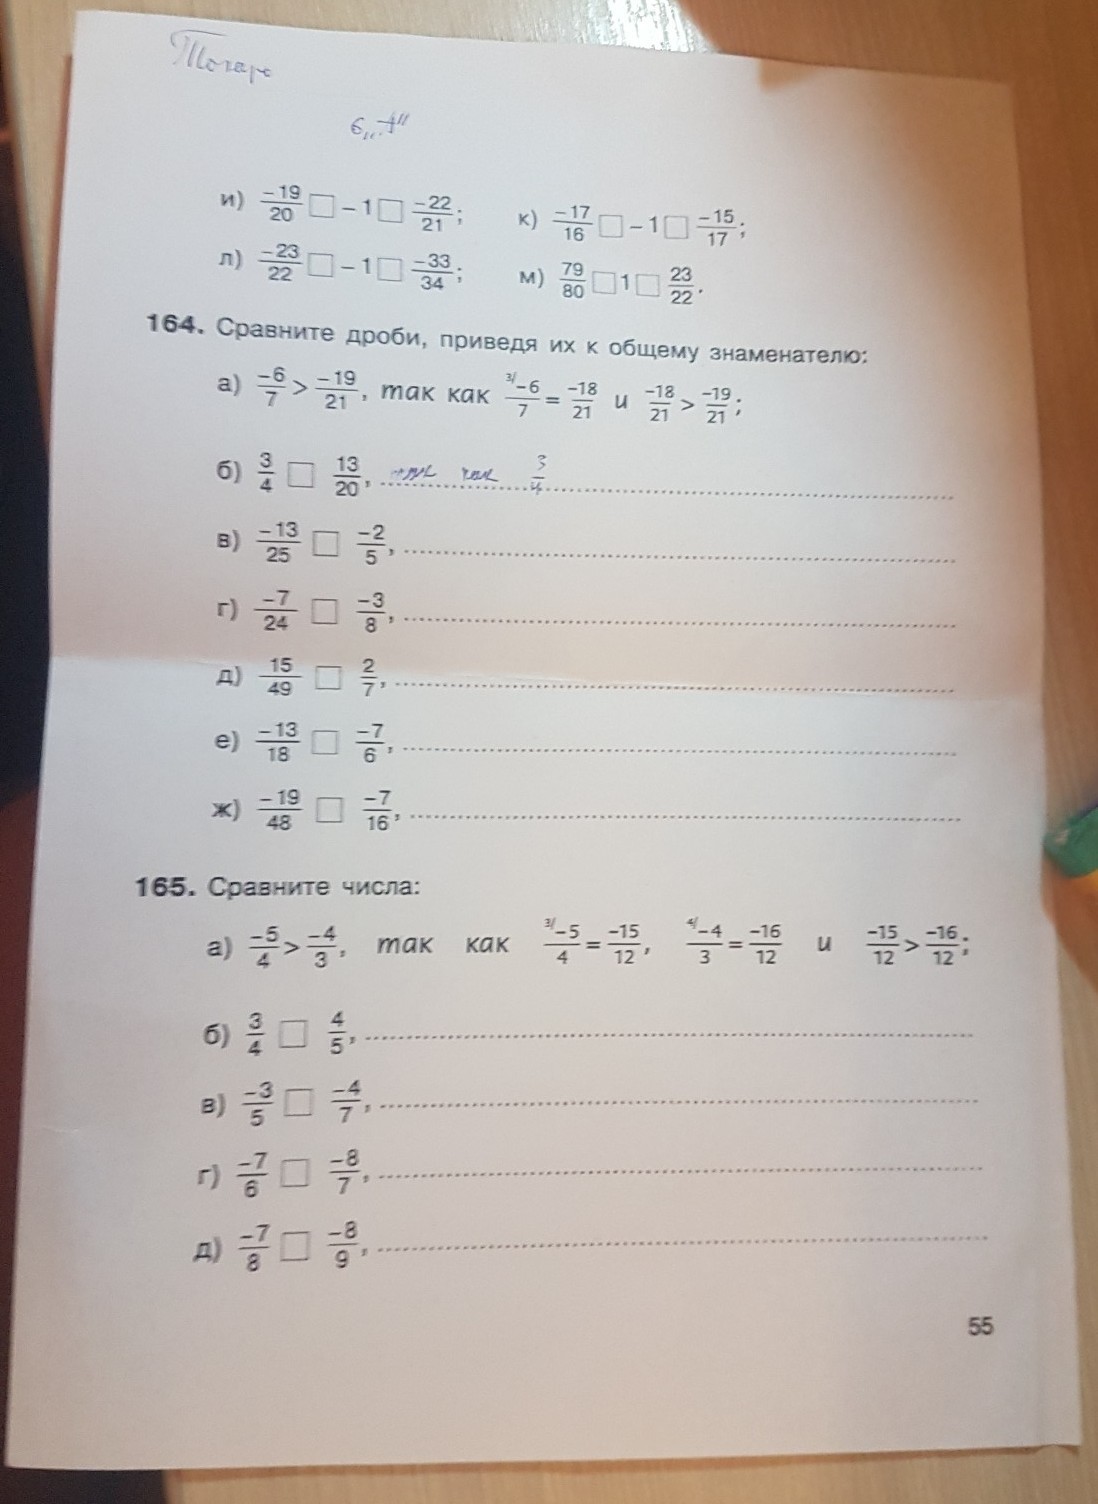 6 „А"
и) -19/20 □ -1 □ -22/21; к) -17/16 □ -1 □ -15/17;
л) -23/22 □ -1 □ -33/34; м) 79/80 □ 1 □ 23/22.
164. Сравните дроби, приведя их к общему знаменателю:
а) -6/7 > -19/21, так как ³⁄-6/7 = -18/21 и -18/21 > -19/21;
б) 3/4 □ 13/20, так как 3/4
в) -13/25 □ -2/5,
г) -7/24 □ -3/8,
д) 15/49 □ 2/7,
е) -13/18 □ -7/6,
ж) -19/48 □ -7/16,
165. Сравните числа:
а) -5/4 > -4/3, так как ³⁄-5/4 = -15/12, ⁴⁄-4/3 = -16/12 и -15/12 > -16/12;
б) 3/4 □ 4/5,
в) -3/5 □ -4/7,
г) -7/6 □ -8/7,
д) -7/8 □ -8/9,
55